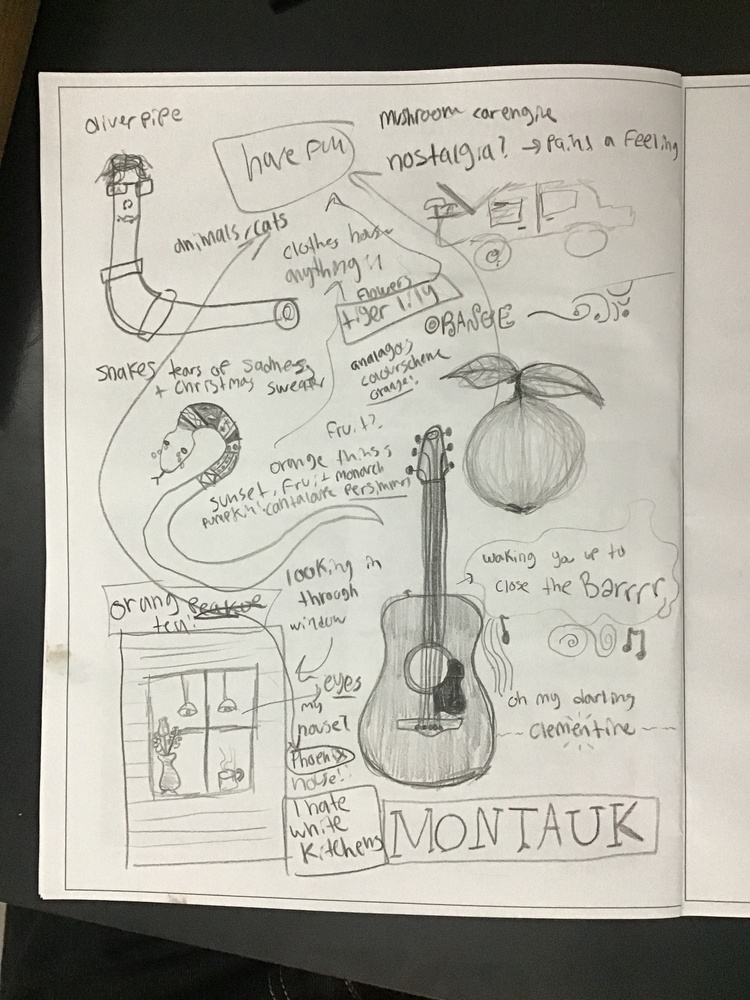 oliver pipe
mushroom car engine
nostalgia? → pains a feeling
have fun
animals, cats
clothes house
anything!!
flowers
tiger lily
ORANGE
analagos
colourscheme
orange!
snakes tears of sadness
+ christmas sweater
fruit?
orange things
sunset, fruit monarch
pumpkin! cantaloupe persimmon
looking in
through
window
waking you up to
close the Barrrr,
orang
tey!
eyes
my
house?
Phoenix
house!!
oh my darling
clementine
I hate
white
kitchens
MONTAUK